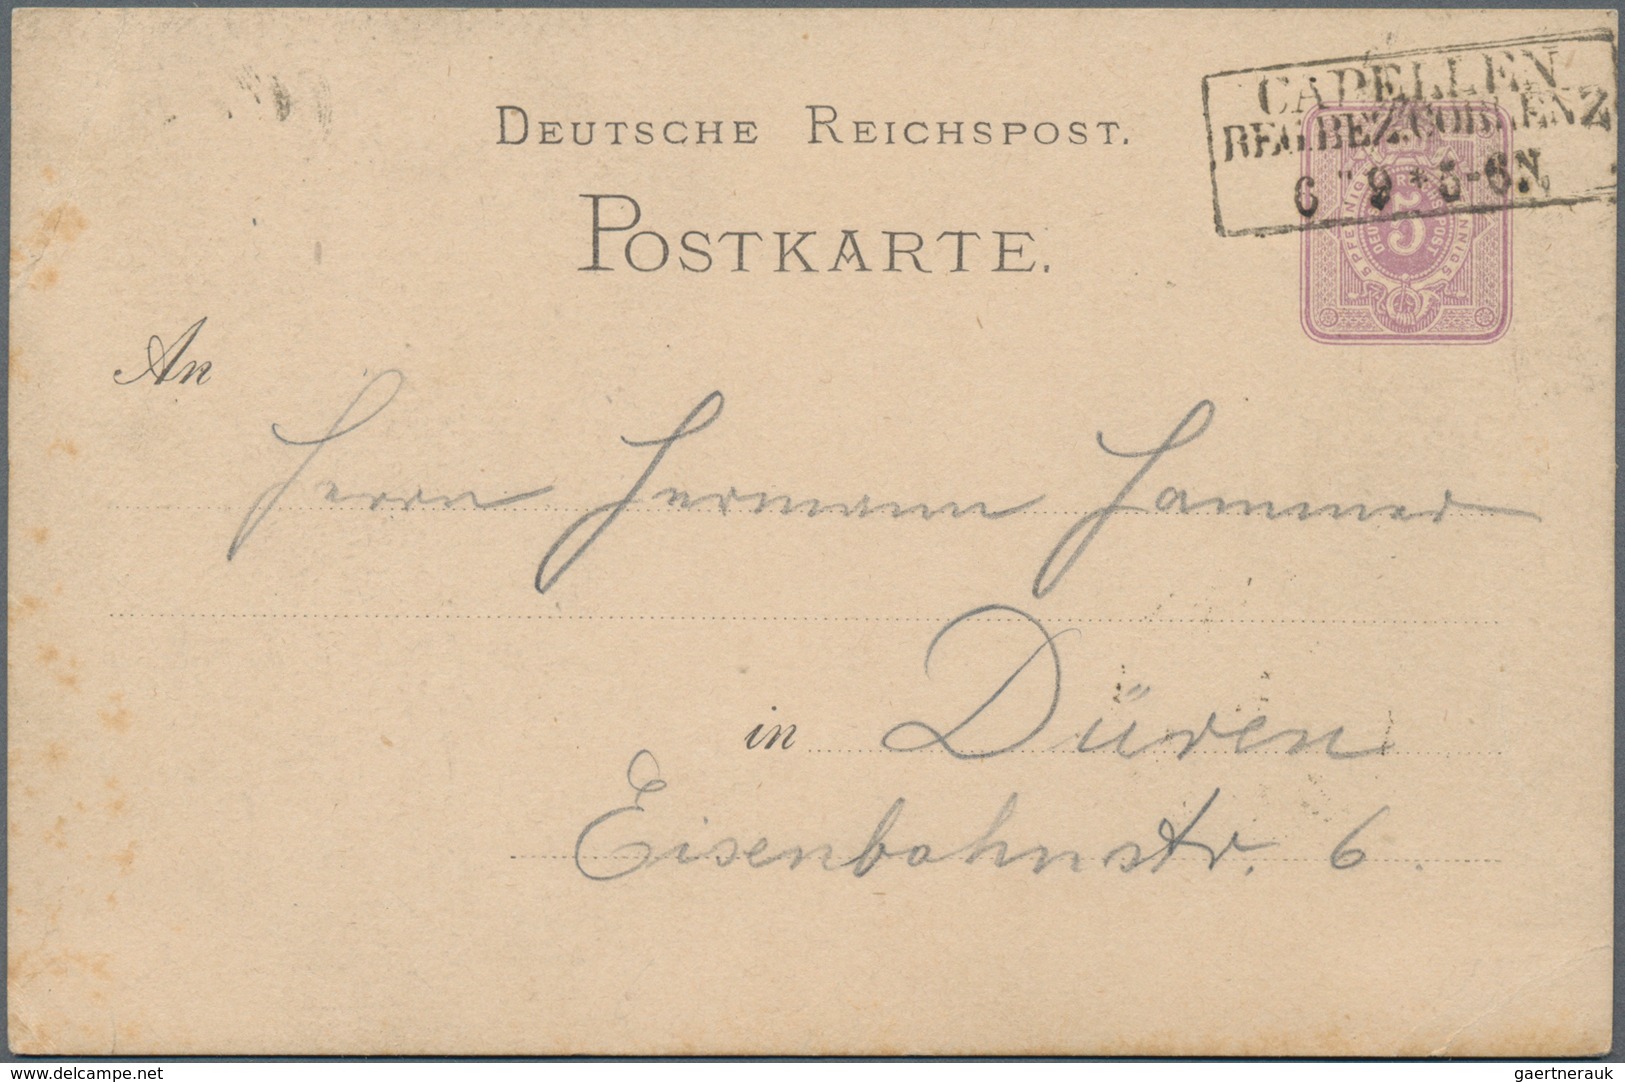 DEUTSCHE REICHSPOST.
POSTKARTE.
CAPELLEN
REG.BEZ.COBLENZ
6 9 * 5-6N.
5 PFENNIG 5 PFENNIG 5
DEUTSCHE REICHSPOST
5
An
Herrn Hermann Hammer
in Düren
Eisenbahnstr. 6.
www.delcampe.net
gaertnerauk